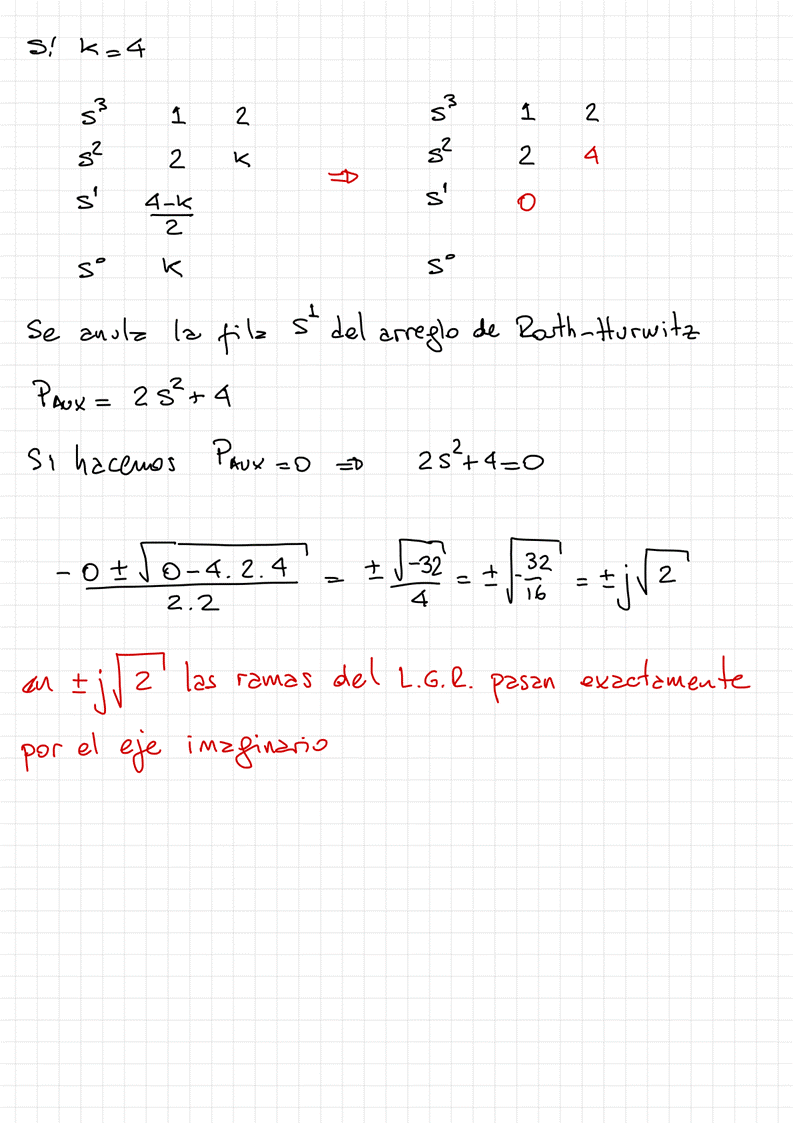 Si K=4
s³ 1 2 s³ 1 2
s² 2 K ⇒ s² 2 4
s¹ (4-K)/2 s¹ 0
s⁰ K s⁰
Se anula la fila s¹ del arreglo de Routh-Hurwitz
P_AUX = 2s²+4
Si hacemos P_AUX=0 ⇒ 2s²+4=0
(-0±√(0-4.2.4))/(2.2) = ±√(-32)/4 = ±√(-32/16) = ±j√2
en ±j√2 las ramas del L.G.R. pasan exactamente
por el eje imaginario